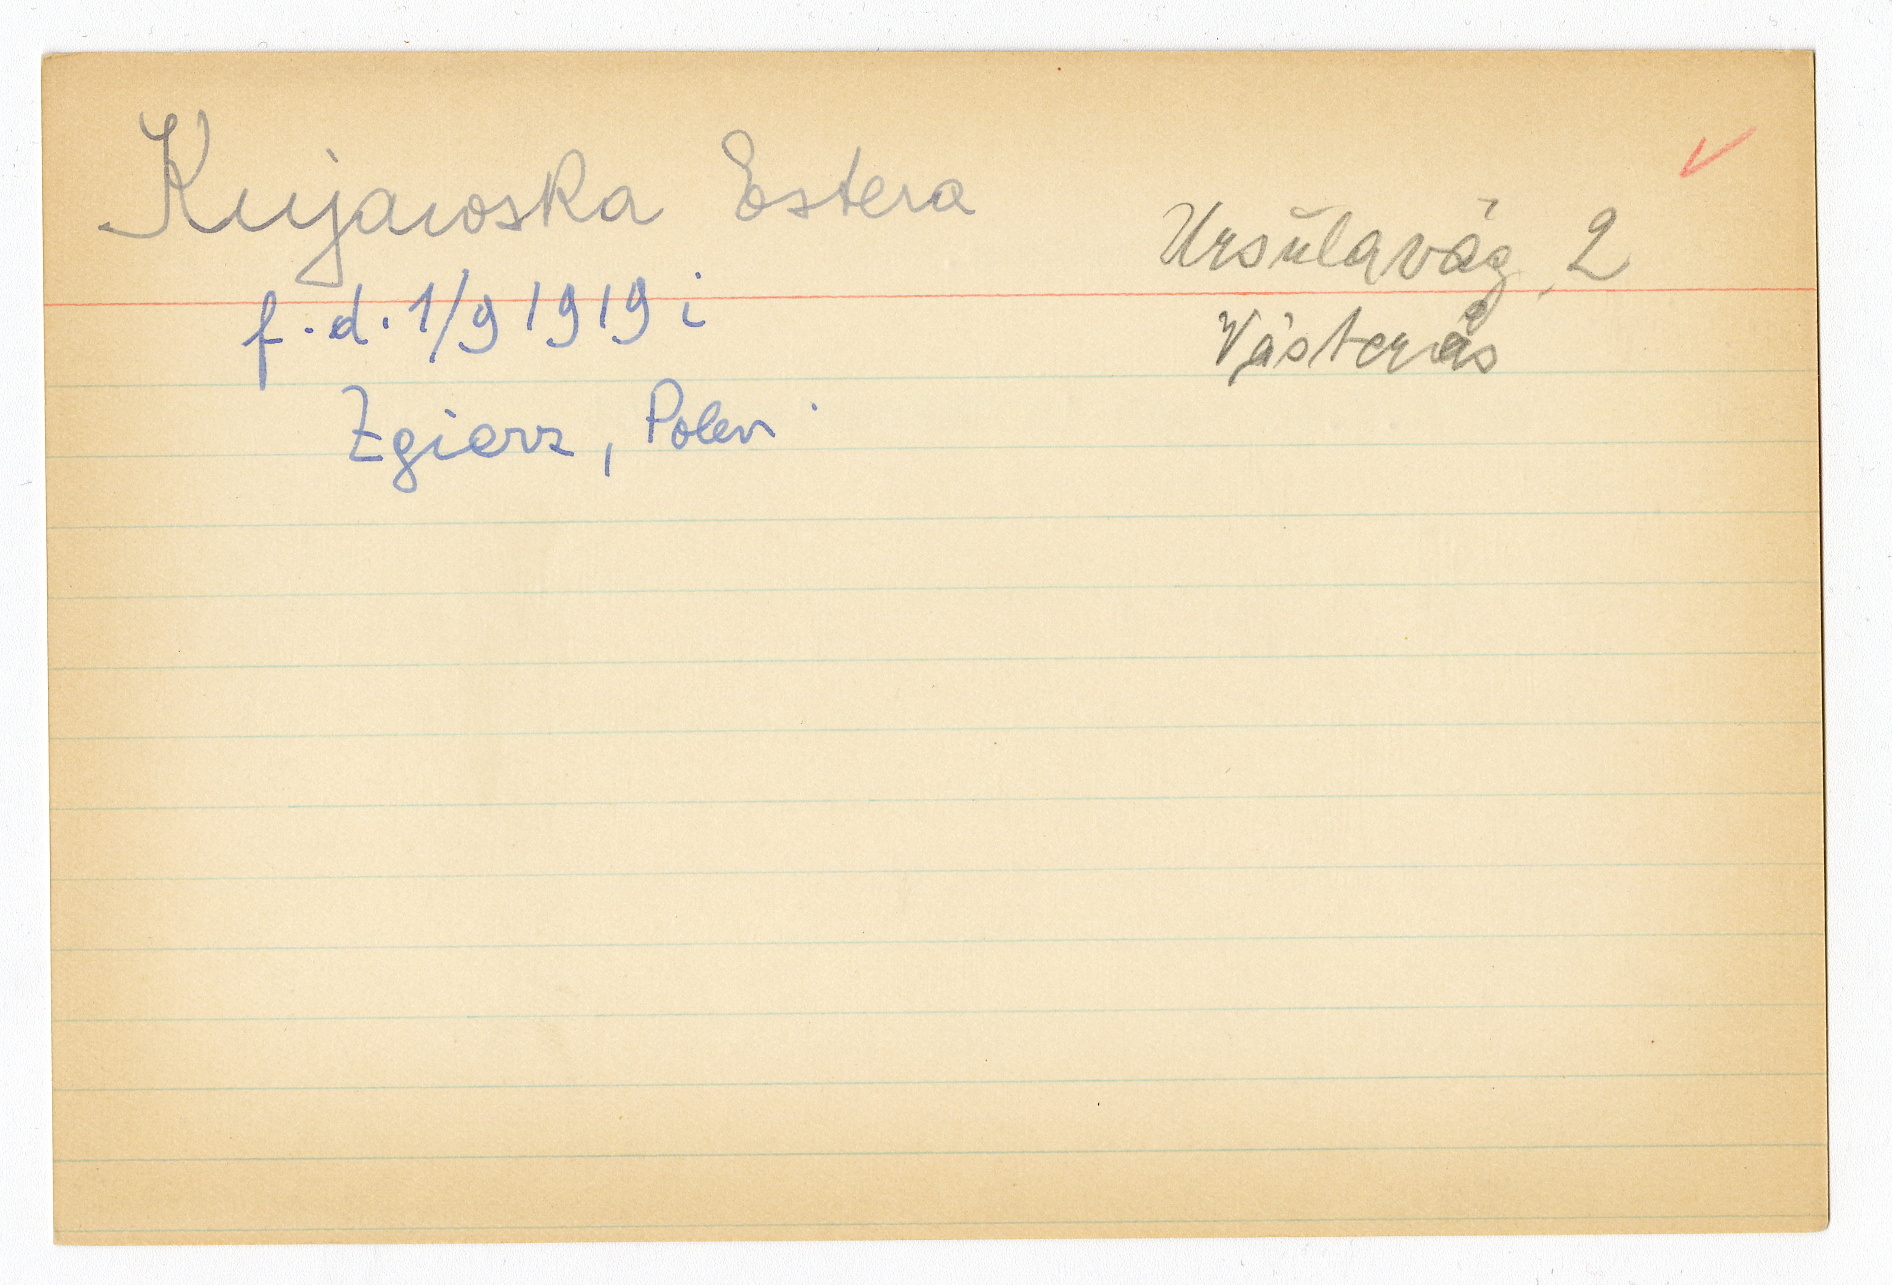 Kujawska Estera
Ursulaväg 2
Västerås
f.d. 1/9 1919 i
Zgierz, Polen